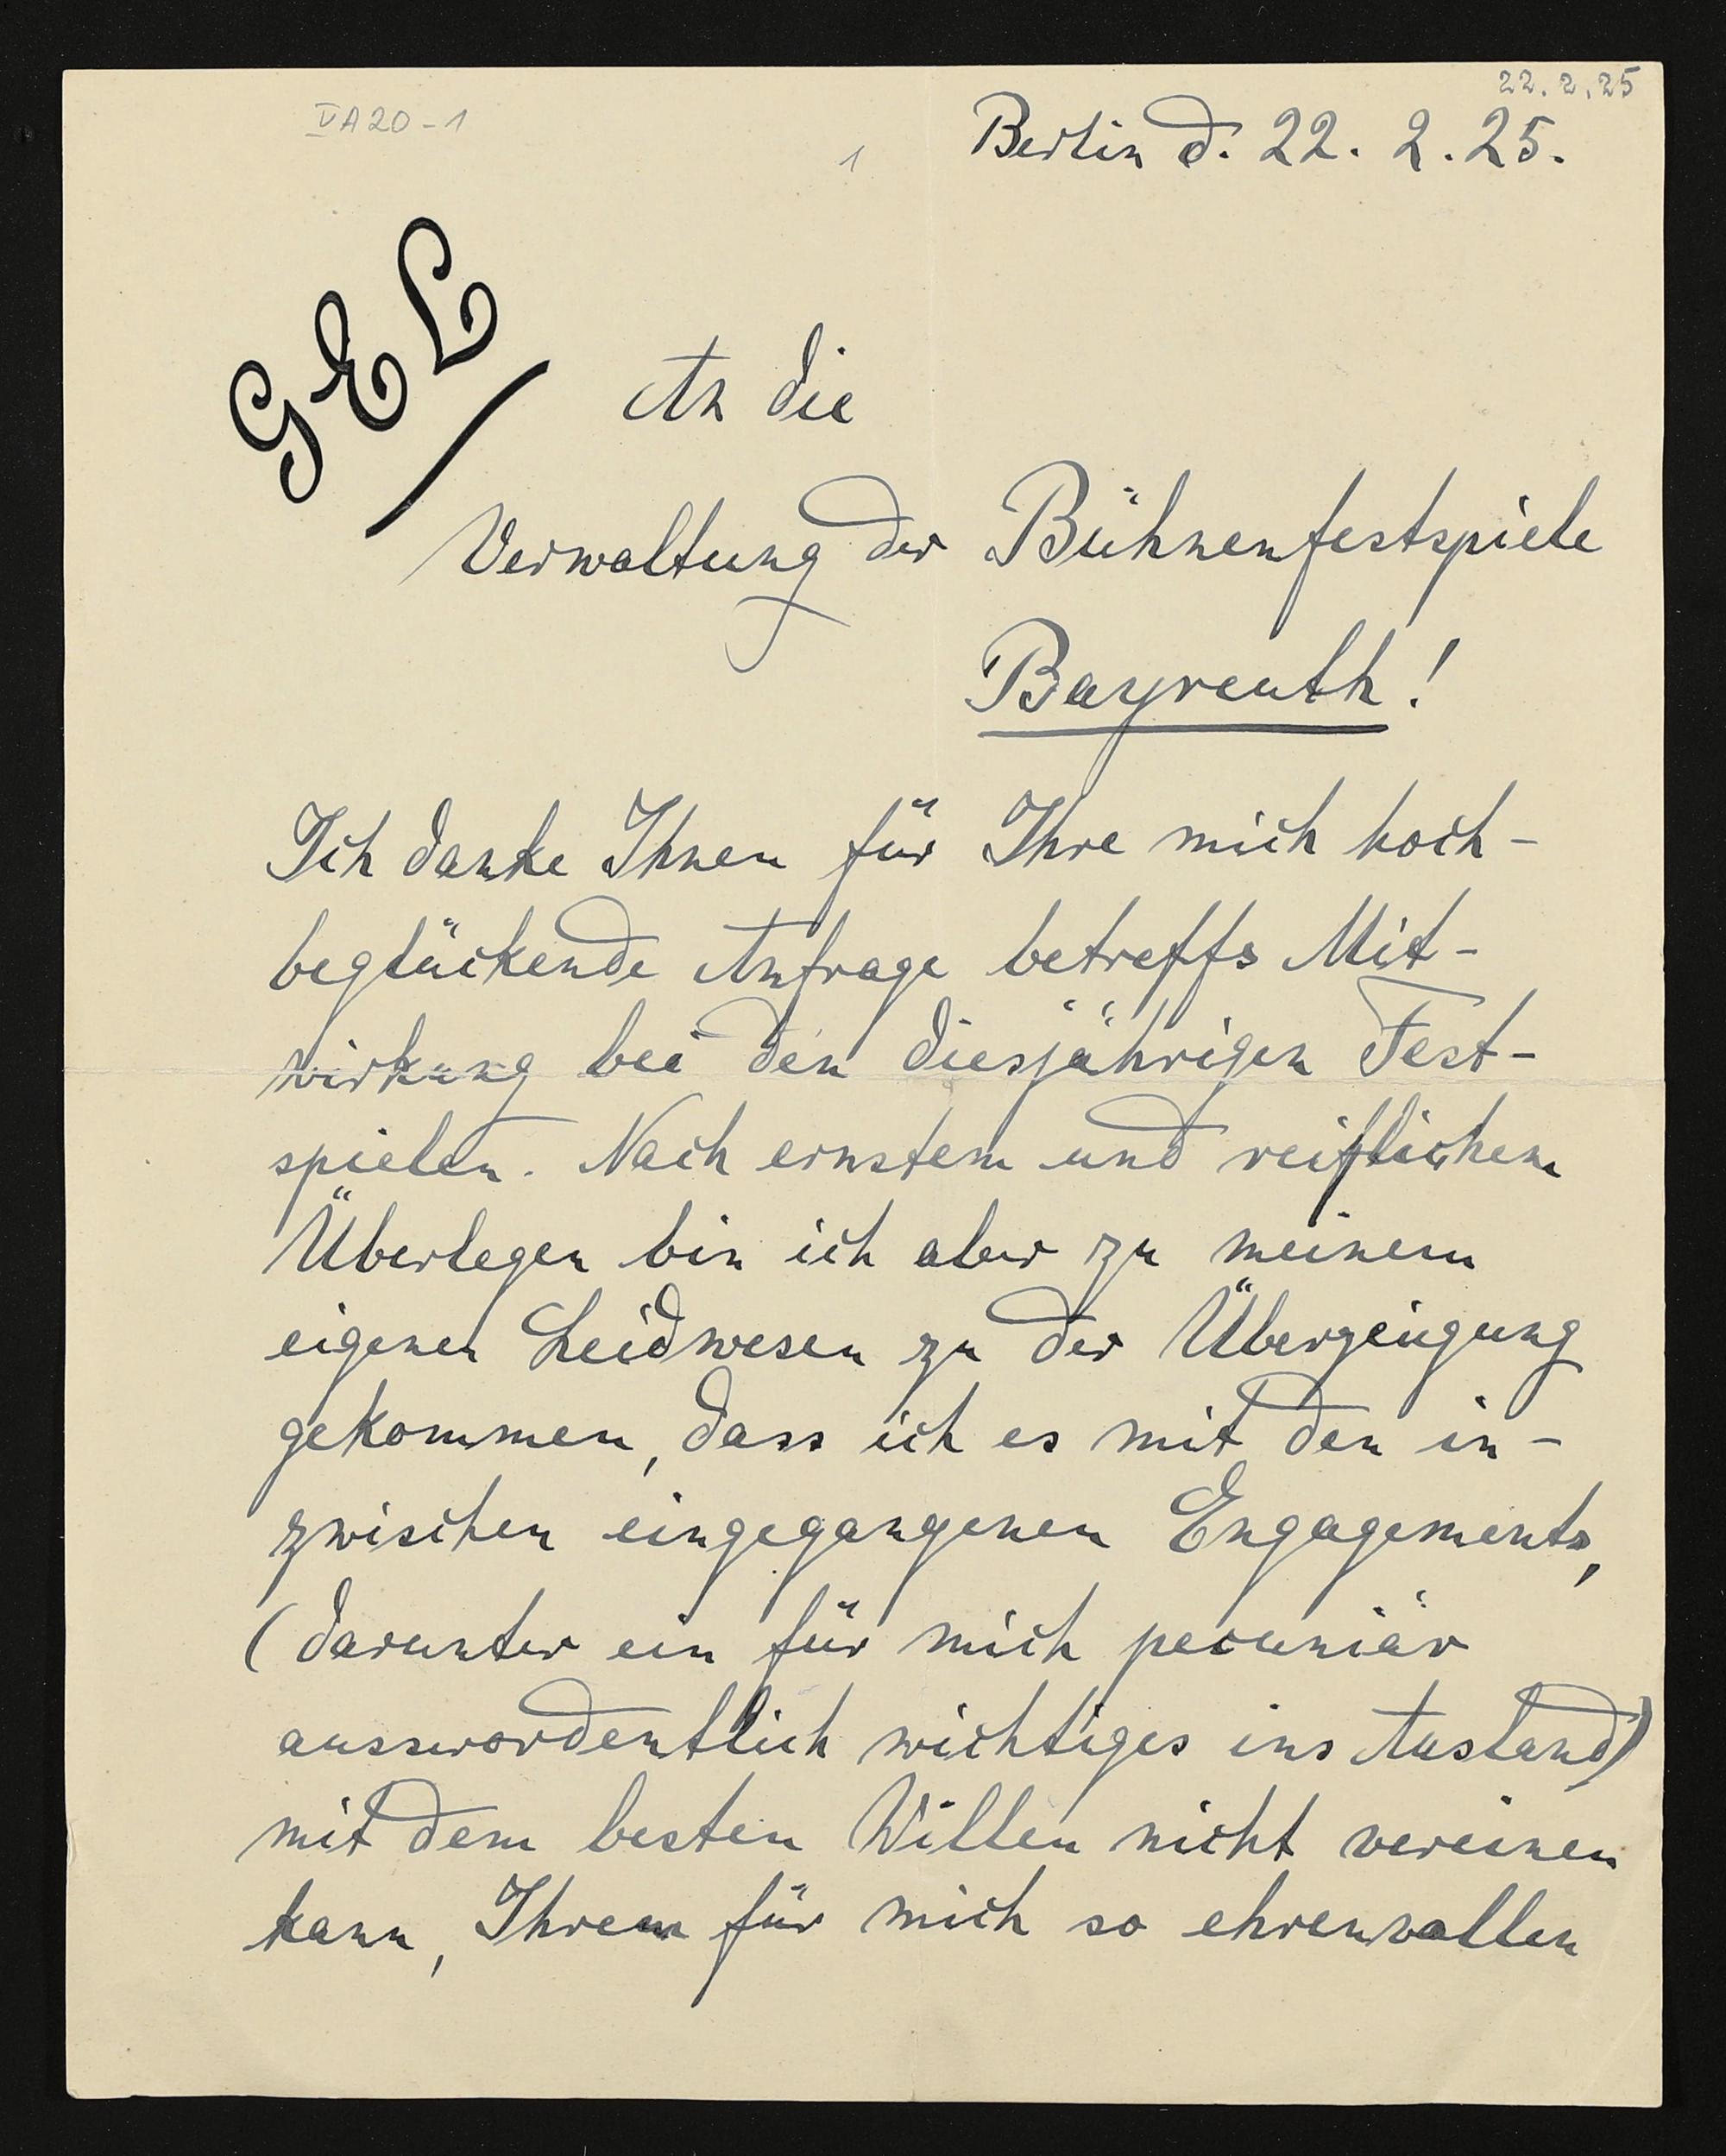 22. 2. 25
V A 20 - 1
1
Berlin d. 22. 2. 25.
GEL
An die
Verwaltung der Bühnenfestspiele
Bayreuth!
Ich danke Ihnen für Ihre mich hoch-
beglückende Anfrage betreffs Mit-
wirkung bei den diesjährigen Fest-
spielen. Nach ernstem und reiflichem
Überlegen bin ich aber zu meinem
eigenen Leidwesen zu der Überzeugung
gekommen, dass ich es mit den in-
zwischen eingegangenen Engagements,
(darunter ein für mich pecuniär
ausserordentlich wichtiges ins Ausland)
mit dem besten Willen nicht vereinen
kann, Ihrem für mich so ehrenvollen